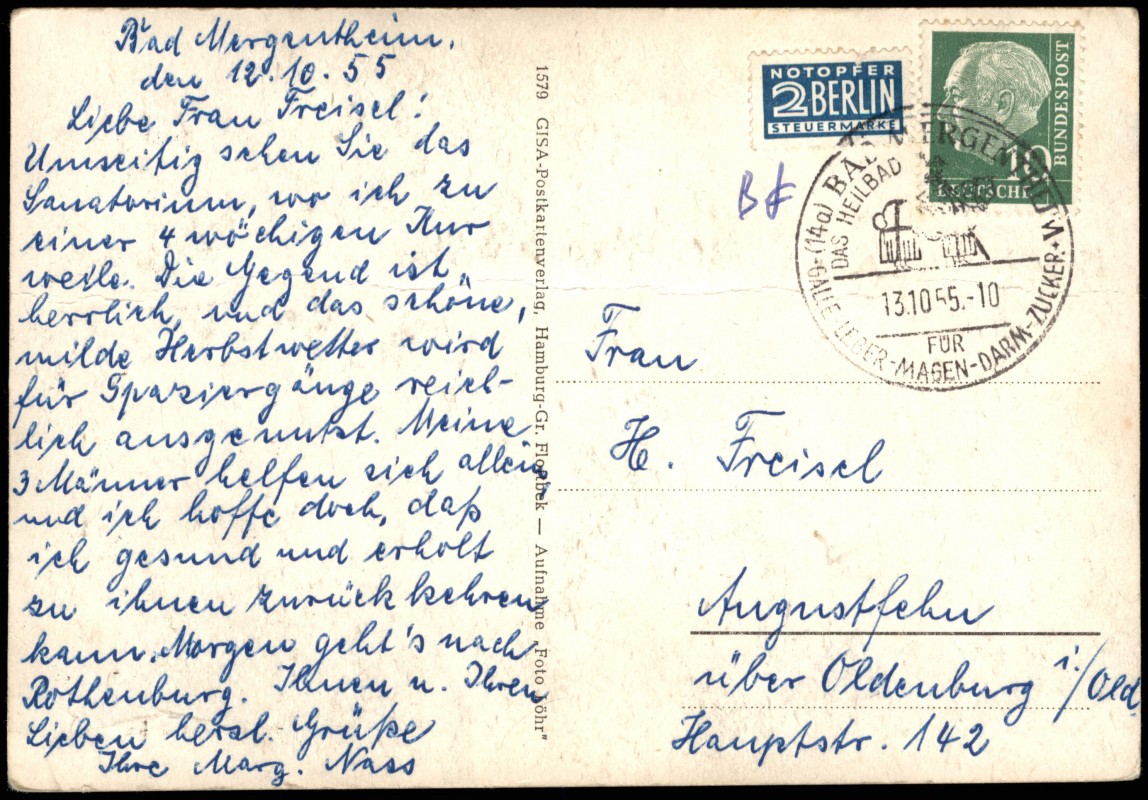 Bad Mergentheim,
den 12.10.55
Liebe Frau Freisel!
Umseitig sehen Sie das
Sanatorium, wo ich zu
einer 4 wöchigen Kur
weile. Die Gegend ist
herrlich, und das schöne,
milde Herbstwetter wird
für Spaziergänge reich-
lich ausgenutzt. Meine
3 Männer helfen sich allein
und ich hoffe doch, daß
ich gesund und erholt
zu ihnen zurückkehren
kann. Morgen geht's nach
Rothenburg. Ihnen u. Ihren
Lieben herzl. Grüße
Ihre Marg. Nass
1579 GISA-Postkartenverlag, Hamburg-Gr. Flottbek — Aufnahme „Foto Löhr"
NOTOPFER
2 BERLIN
STEUERMARKE
BUNDESPOST
10
DEUTSCHE
(14a) BAD MERGENTHEIM
DAS HEILBAD
13.10.55.-10
FÜR
GALLE LEBER-MAGEN-DARM-ZUCKER
Frau
H. Freisel
Augustfehn
über Oldenburg i./Old.
Hauptstr. 142